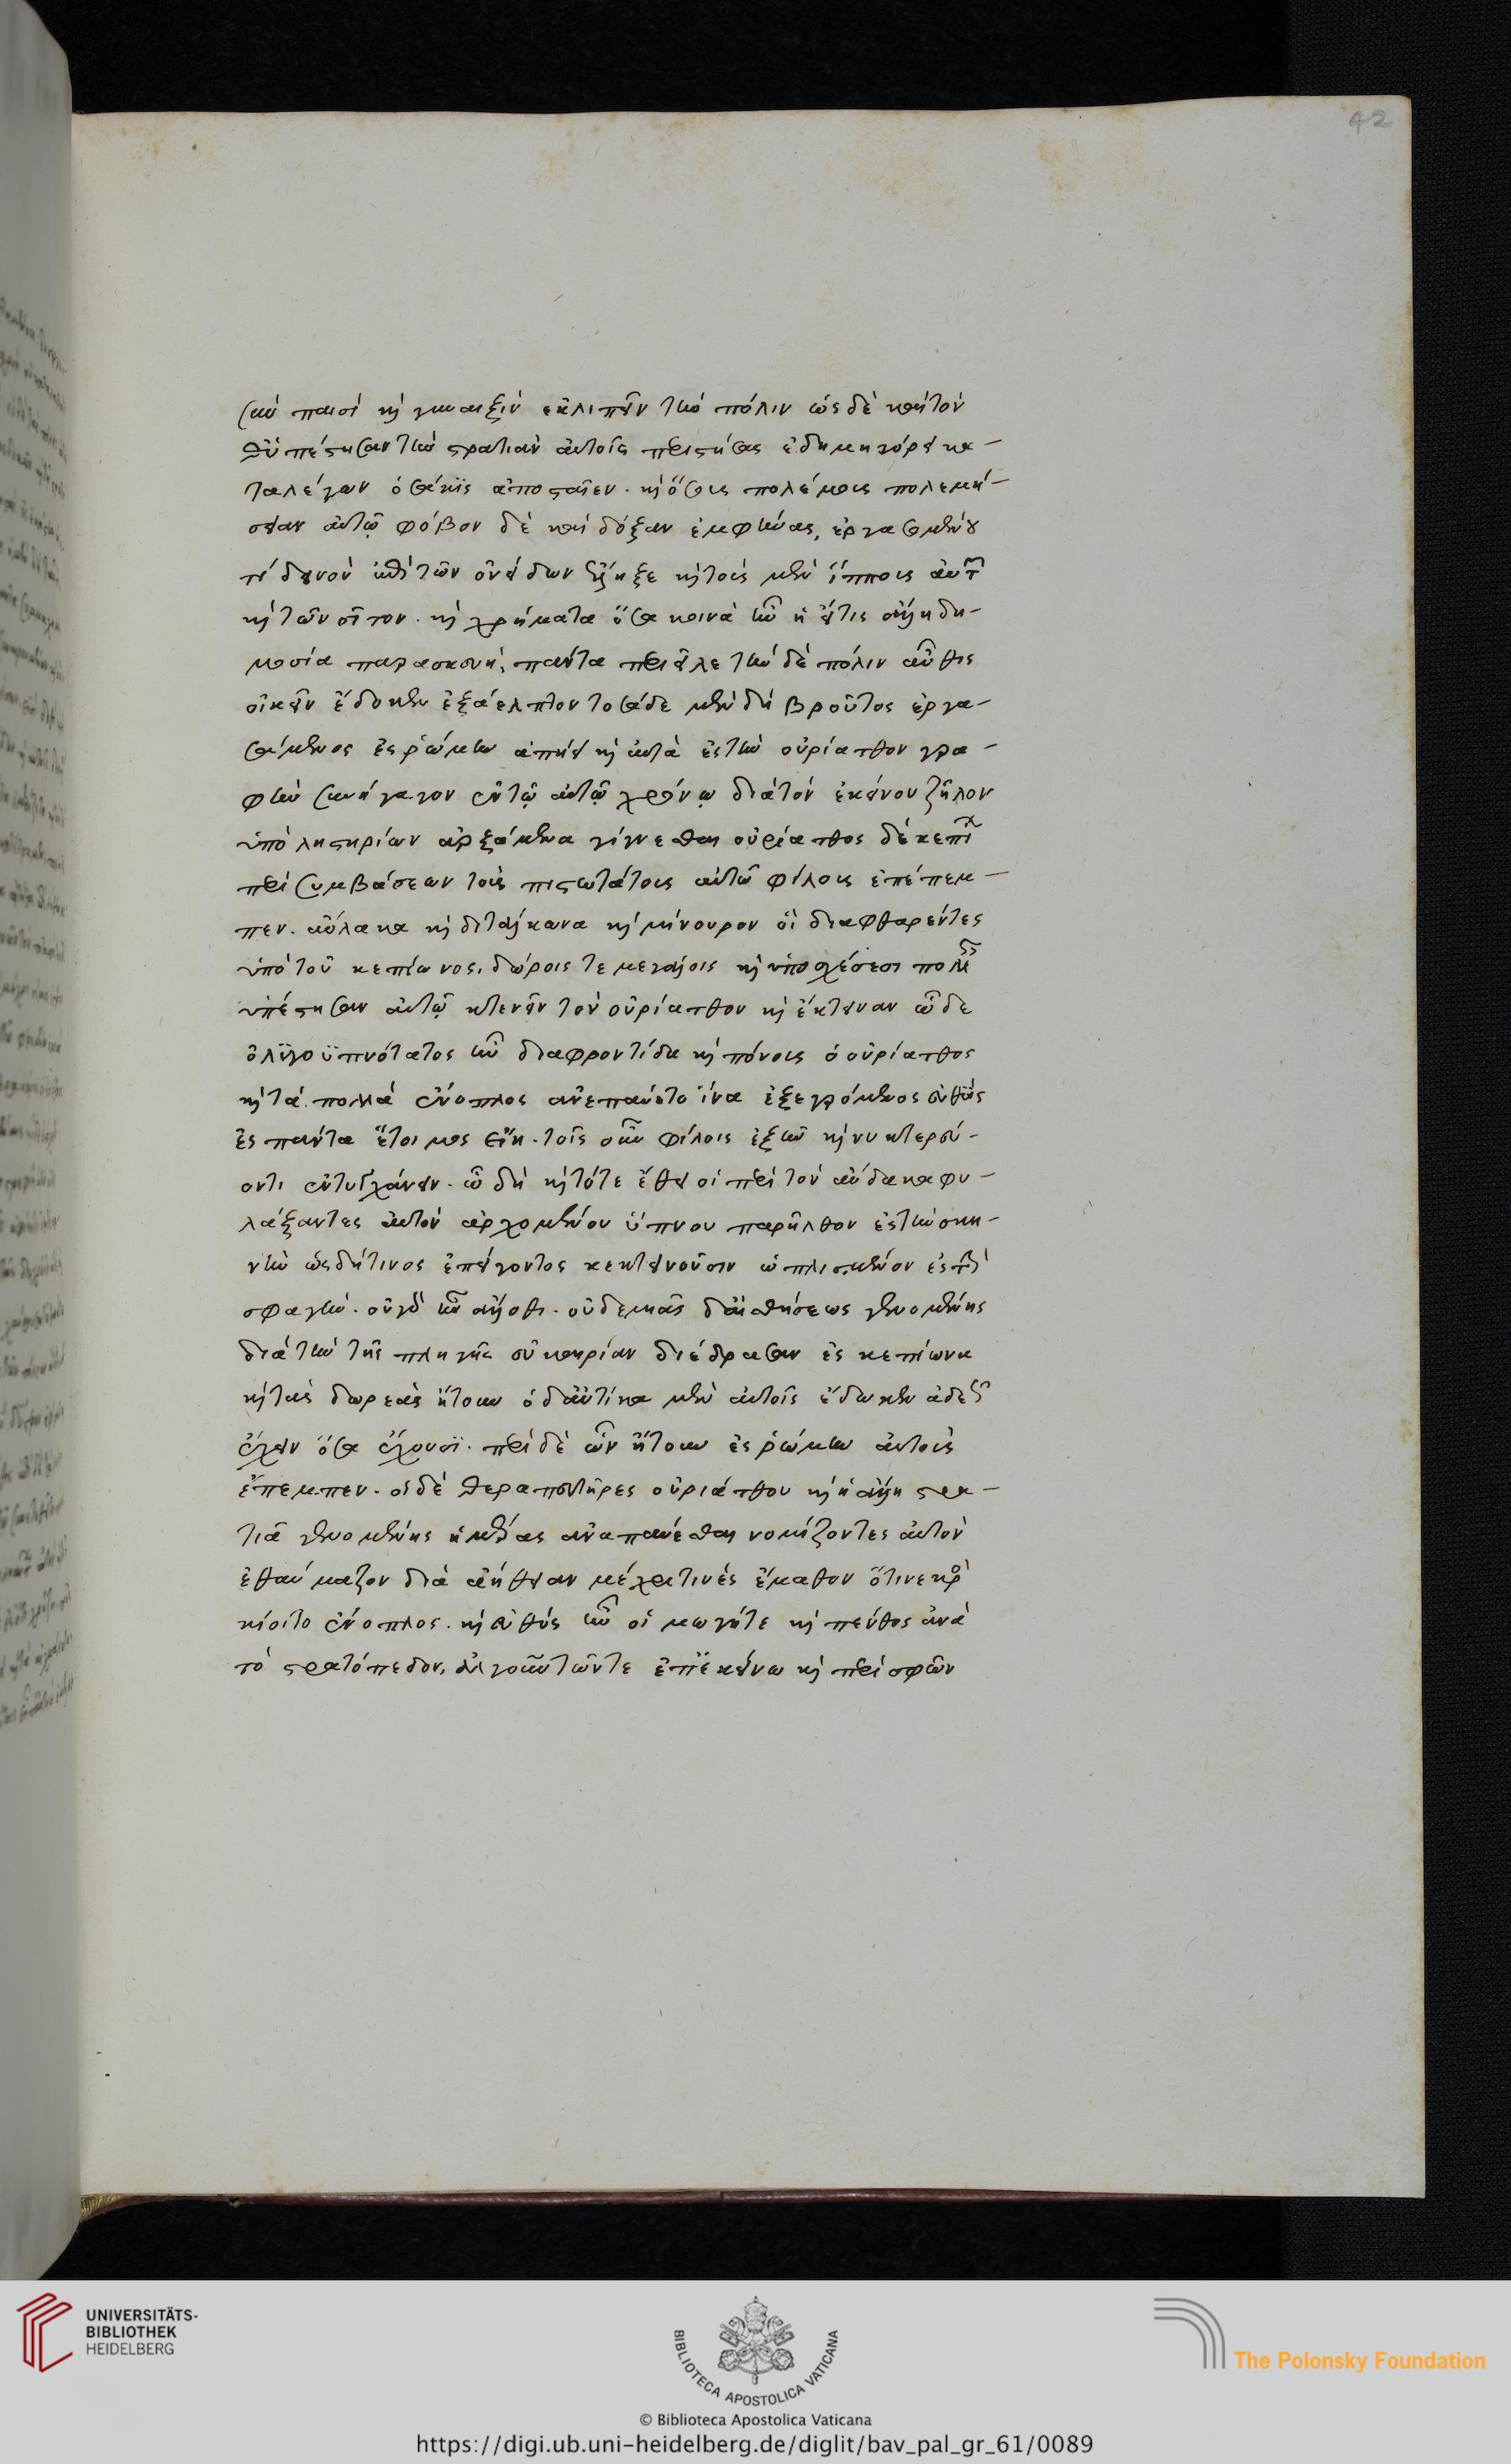 42
σὺν παισὶ καὶ γυναιξὶν ἐκλιπεῖν τὴν πόλιν ὡς δὲ καὶ τοῦτο
οὐ πέστησαν τὴν στρατιὰν αὐτοῖς περιστήσας ἐδημηγόρει κα-
ταλέγων ὁσάκις ἀποσταῖεν. καὶ ὅσους πολέμους πολεμή-
σειαν αὐτῷ φόβον δὲ καὶ δόξαν ἐμφήνας, ἐργασομένου
τι δεινὸν ἐπὶ τῶν ὀνειδῶν ἔληξε καὶ τοὺς μὲν ἵππους αὐτῶν
καὶ τὸν σῖτον. καὶ χρήματα ὅσα κοινὰ ἦν ἢ εἴ τις ἄλλη δη-
μοσία παρασκευή, πάντα περιεῖλε τὴν δὲ πόλιν αὖθις
οἰκεῖν ἔδωκεν ἐξ ἀέλπτου τοσάδε μὲν δὴ βροῦτος ἐργα-
σάμενος ἐς ῥώμην ἀπῄει καὶ αὐτὰ ἐς τὴν οὐρίατθον γρα-
φὴν συνήγαγον ἐν τῷ αὐτῷ χρόνῳ διὰ τὸν ἐκείνου ζῆλον
ὑπὸ ληστηρίων ἀρξάμενα γίγνεσθαι οὐρίατθος δὲ κεπίωνι
περὶ συμβάσεων τοὺς πιστωτάτους αὐτῶ φίλους ἐπέπεμ-
πεν. αὔλακα καὶ διτάλκωνα καὶ μίνουρον οἳ διαφθαρέντες
ὑπὸ τοῦ κεπίωνος, δώροις τε μεγάλοις καὶ ὑποσχέσεσι πολλαῖς
ὑπέστησαν αὐτῷ κτενεῖν τὸν οὐρίατθον καὶ ἔκτειναν ὧδε
ὀλιγοϋπνότατος ἦν διὰ φροντίδα καὶ πόνους ὁ οὐρίατθος
καὶ τὰ πολλὰ ἔνοπλος ἀνεπαύετο ἵνα ἐξεγρόμενος εὐθὺς
ἐς πάντα ἕτοιμος εἴη. τοῖς οὖν φίλοις ἐξῆν καὶ νυκτερεύ-
οντι ἐντυγχάνειν. ᾧ δὴ καὶ τότε ἔθει οἱ περὶ τὸν αὔδακα φυ-
λάξαντες αὐτὸν ἀρχομένου ὕπνου παρῆλθον ἐς τὴν σκη-
νὴν ὡς δή τινος ἐπείγοντος κεκτεινοῦσιν ὡπλισμένον ἐς τὴν
σφαγήν. οὐ γὰρ ἦν ἄλλοθι. οὐδεμιᾶς δ' αἰσθήσεως γενομένης
διὰ τὴν τῆς πληγῆς εὐκαιρίαν διέδρασαν ἐς κεπίωνα
καὶ τὰς δωρεὰς ᾔτουν ὁ δ' αὐτίκα μὲν αὐτοῖς ἔδωκεν ἀδεῶς
ἔχειν ὅσα ἔχουσι. περὶ δὲ ὧν ᾔτουν ἐς ῥώμην αὐτοὺς
ἔπεμπεν. οἱ δὲ θεραπευτῆρες οὐριάτθου καὶ ἡ ἄλλη στρα-
τιὰ γενομένης ἡμέρας ἀναπαύεσθαι νομίζοντες αὐτὸν
ἐθαύμαζον διὰ ἀήθειαν μέχρι τινὲς ἔμαθον ὅτι νεκρὸς
κέοιτο ἔνοπλος. καὶ εὐθὺς ἦν οἰμωγή τε καὶ πένθος ἀνὰ
τὸ στρατόπεδον, ἀλγούντων τε ἐπ' ἐκείνῳ καὶ περὶ σφῶν
UNIVERSITÄTS-
BIBLIOTHEK
HEIDELBERG
BIBLIOTECA APOSTOLICA VATICANA
The Polonsky Foundation
© Biblioteca Apostolica Vaticana
https://digi.ub.uni-heidelberg.de/diglit/bav_pal_gr_61/0089